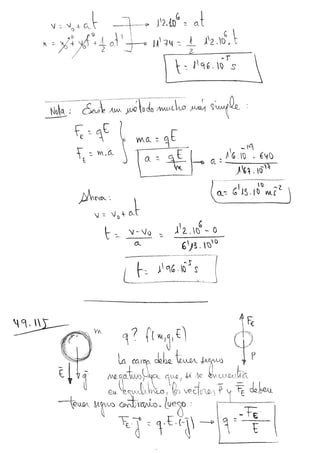 v = v₀ + at → 1'2.10⁶ = at
x = x₀ + v₀t + 1/2 at² → 11'74 = 1/2 1'2.10⁶.t
t = 1'96.10⁻⁵ s
Nota: Existe un método mucho más simple:
F_E = qE
F_E = m.a
ma = qE
a = qE/m → a = 1'6.10⁻¹⁹ . 640 / 1'67.10⁻²⁷
a = 6'13.10¹⁰ ms⁻²
Ahora:
v = v₀ + at
t = (v - v₀)/a = (1'2.10⁶ - 0)/6'13.10¹⁰
t = 1'96.10⁻⁵ s
49.115
m q? f(m,g,E) F_E
E g P
La carga debe tener signo
negativo ya que, si se encuentra
en equilibrio, los vectores P y F_E deben
tener signos contrarios. Luego:
F_E.j = q.E.(-j) → q = -F_E/E